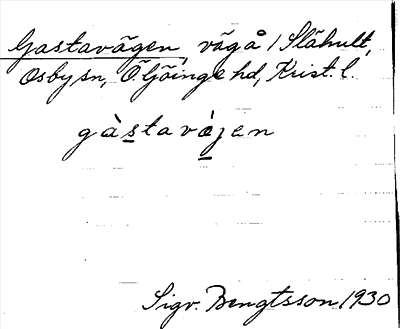 Gastavägen, väg å / Slähult,
Osby sn, Ö Göinge hd, Krist. l.
gàstavàjen
Sigv. Bengtsson 1930